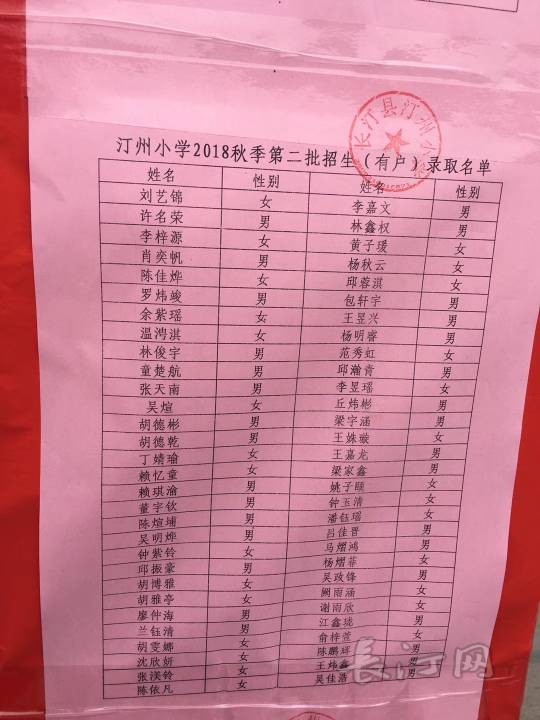 汀州小学2018秋季第二批招生（有户）录取名单
姓名 性别 姓名 性别
刘艺锦 女 李嘉文 男
许名荣 男 林鑫权 男
李梓源 女 黄子瑗 女
肖奕帆 男 杨秋云 女
陈佳烨 女 邱蓉淇 女
罗炜峻 男 包轩宇 男
余紫瑶 女 王昱兴 男
温鸿淇 女 杨明睿 男
林俊宇 男 范秀虹 女
童楚航 男 邱瀚青 男
张天南 男 李昱瑶 女
吴煊 女 丘炜彬 男
胡德彬 男 梁宇涵 男
胡德乾 男 王姝璇 女
丁婧瑜 女 王嘉龙 男
赖忆童 女 梁家鑫 男
赖琪渝 男 姚子颐 女
董宇钦 男 钟玉清 女
陈煊埔 男 潘钰瑶 女
吴明烨 男 吕佳晋 男
钟紫铃 女 马熠鸿 男
邱振豪 男 杨熠菲 女
胡博雅 女 吴政锋 男
胡雅亭 女 阙雨涵 女
廖仲海 男 谢雨欣 女
兰钰清 男 江鑫珑 男
胡雯娜 女 俞梓萱 女
沈欣妍 女 陈鹏辉 男
张渼铃 女 王炜鑫 男
陈依凡 女 吴佳浩 男
长汀县汀州小
长汀网